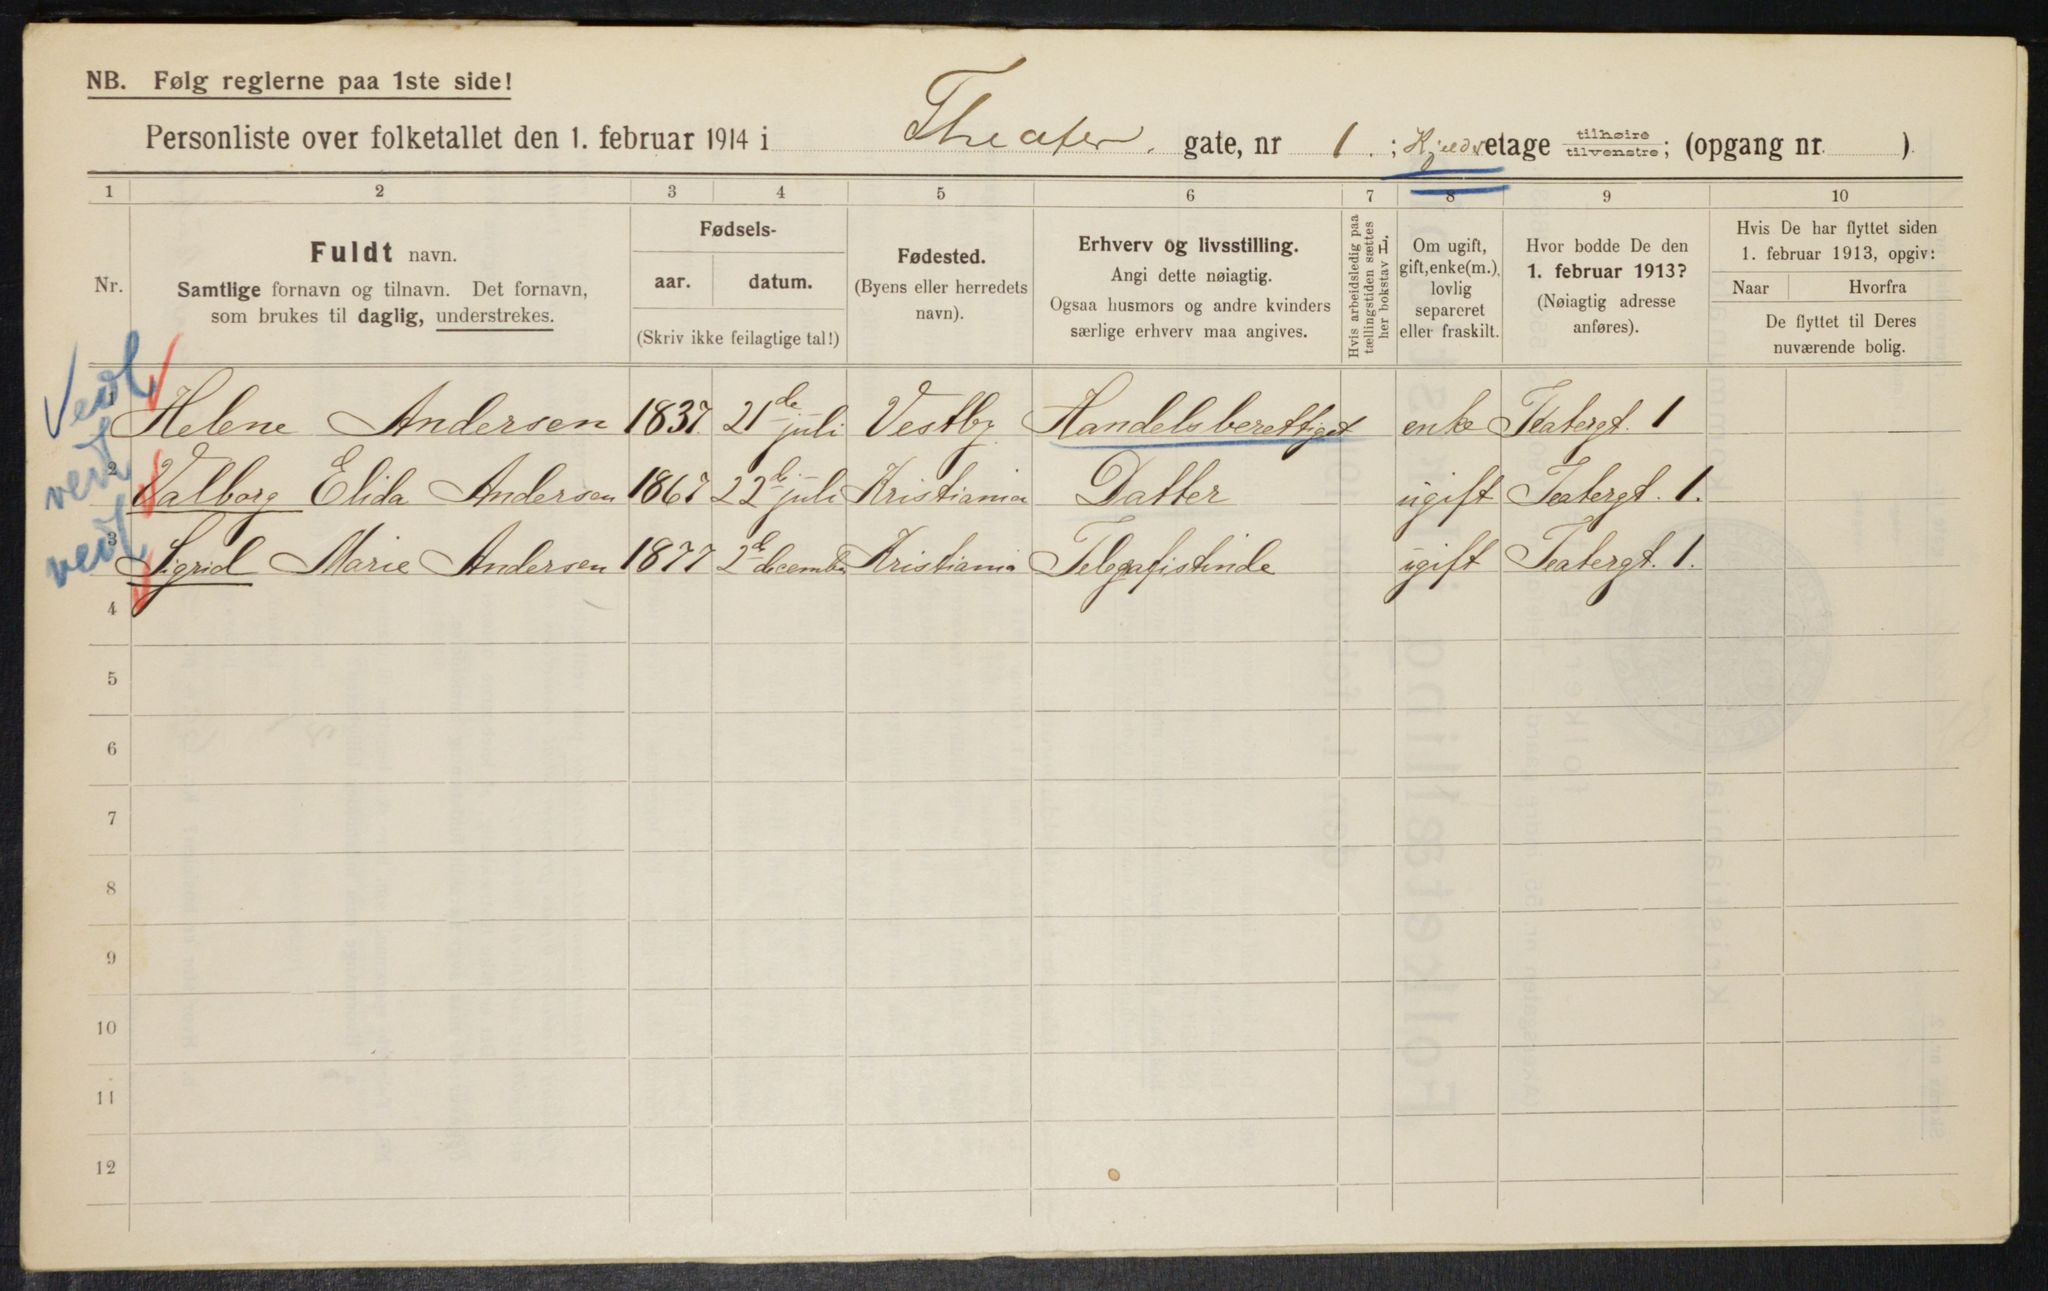 NB. Følg reglerne paa 1ste side!
Personliste over folketallet den 1. februar 1914 i Theater. gate, nr 1. ; Kjelder etage tilhøire tilvenstre; (opgang nr. )
1 2 3 4 5 6 7 8 9 10
Nr.
Fuldt navn.
Samtlige fornavn og tilnavn. Det fornavn,
som brukes til daglig, understrekes.
Fødsels-
aar. datum.
(Skriv ikke feilagtige tal!)
Fødested.
(Byens eller herredets
navn).
Erhverv og livsstilling.
Angi dette nøiagtig.
Ogsaa husmors og andre kvinders
særlige erhverv maa angives.
Hvis arbeidsledig paa
tællingstiden sættes
her bokstav L.
Om ugift,
gift, enke(m.),
lovlig
separeret
eller fraskilt.
Hvor bodde De den
1. februar 1913?
(Nøiagtig adresse
anføres).
Hvis De har flyttet siden
1. februar 1913, opgiv:
Naar Hvorfra
De flyttet til Deres
nuværende bolig.
1 Helene Andersen 1837 21de juli Vestby Handelsberettiget enke Teatergt. 1
2 Valborg Elida Andersen 1867 22de juli Kristiania Datter ugift Teatergt. 1.
3 Sigrid Marie Andersen 1877 2de december Kristiania Telegrafistinde ugift Teatergt. 1.
4
5
6
7
8
9
10
11
12